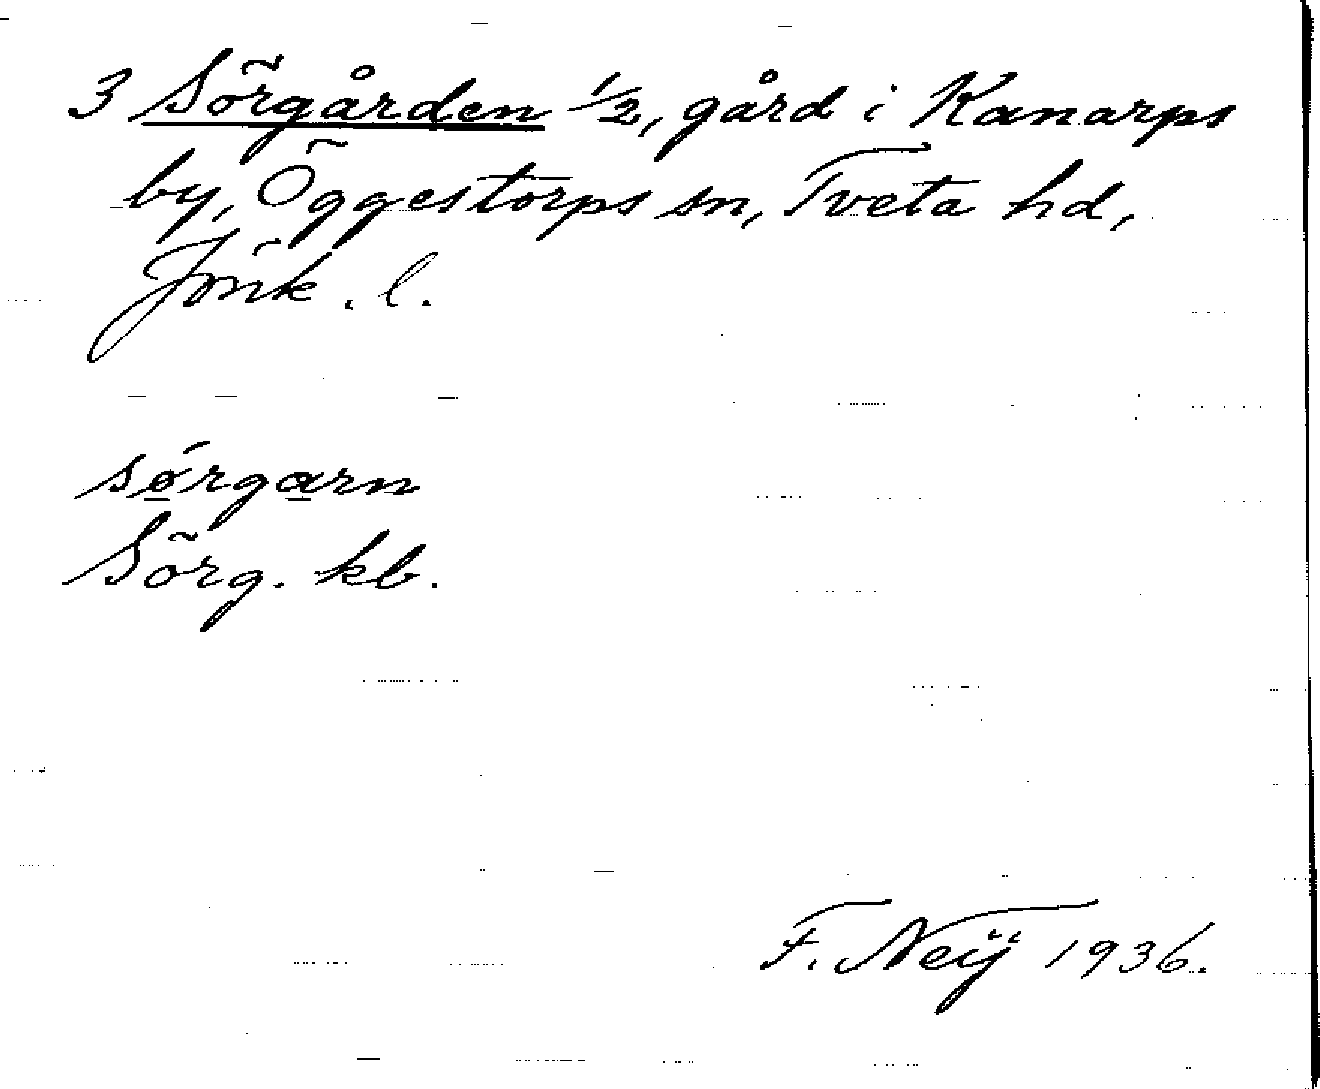 3 Sörgården 1/2, gård i Kanarps
by, Öggestorps sn, Tveta hd,
Jönk. l.
sǿrgarn
Sörg. kb.
F. Neij 1936.